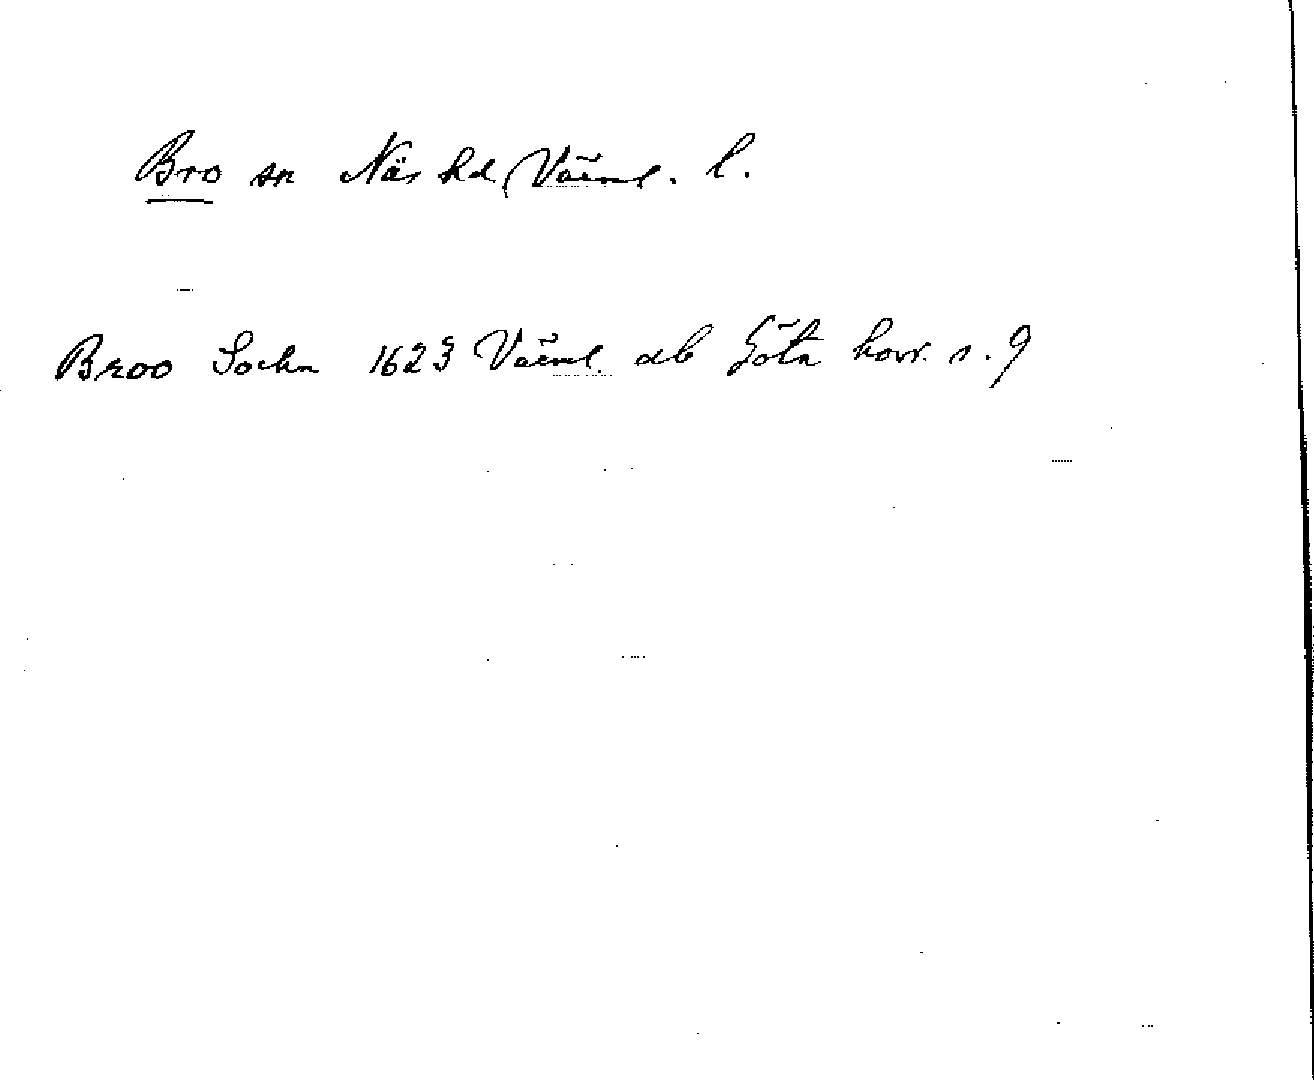 Bro sn Näs hd, Värml. l.
Broo Sochn 1623 Värml. ab Göta hovr. s. 9